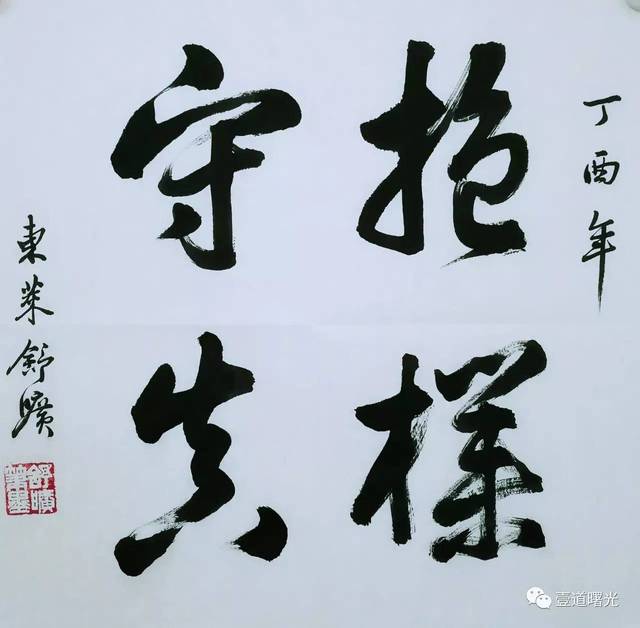 丁酉年
抱樸
守真
東萊舒曠
舒曠
壹道曙光